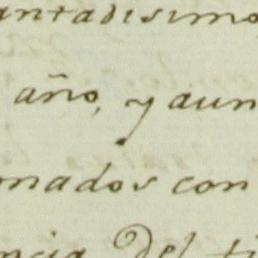 antadisimo
año, y aun
mados con
ncia del ti